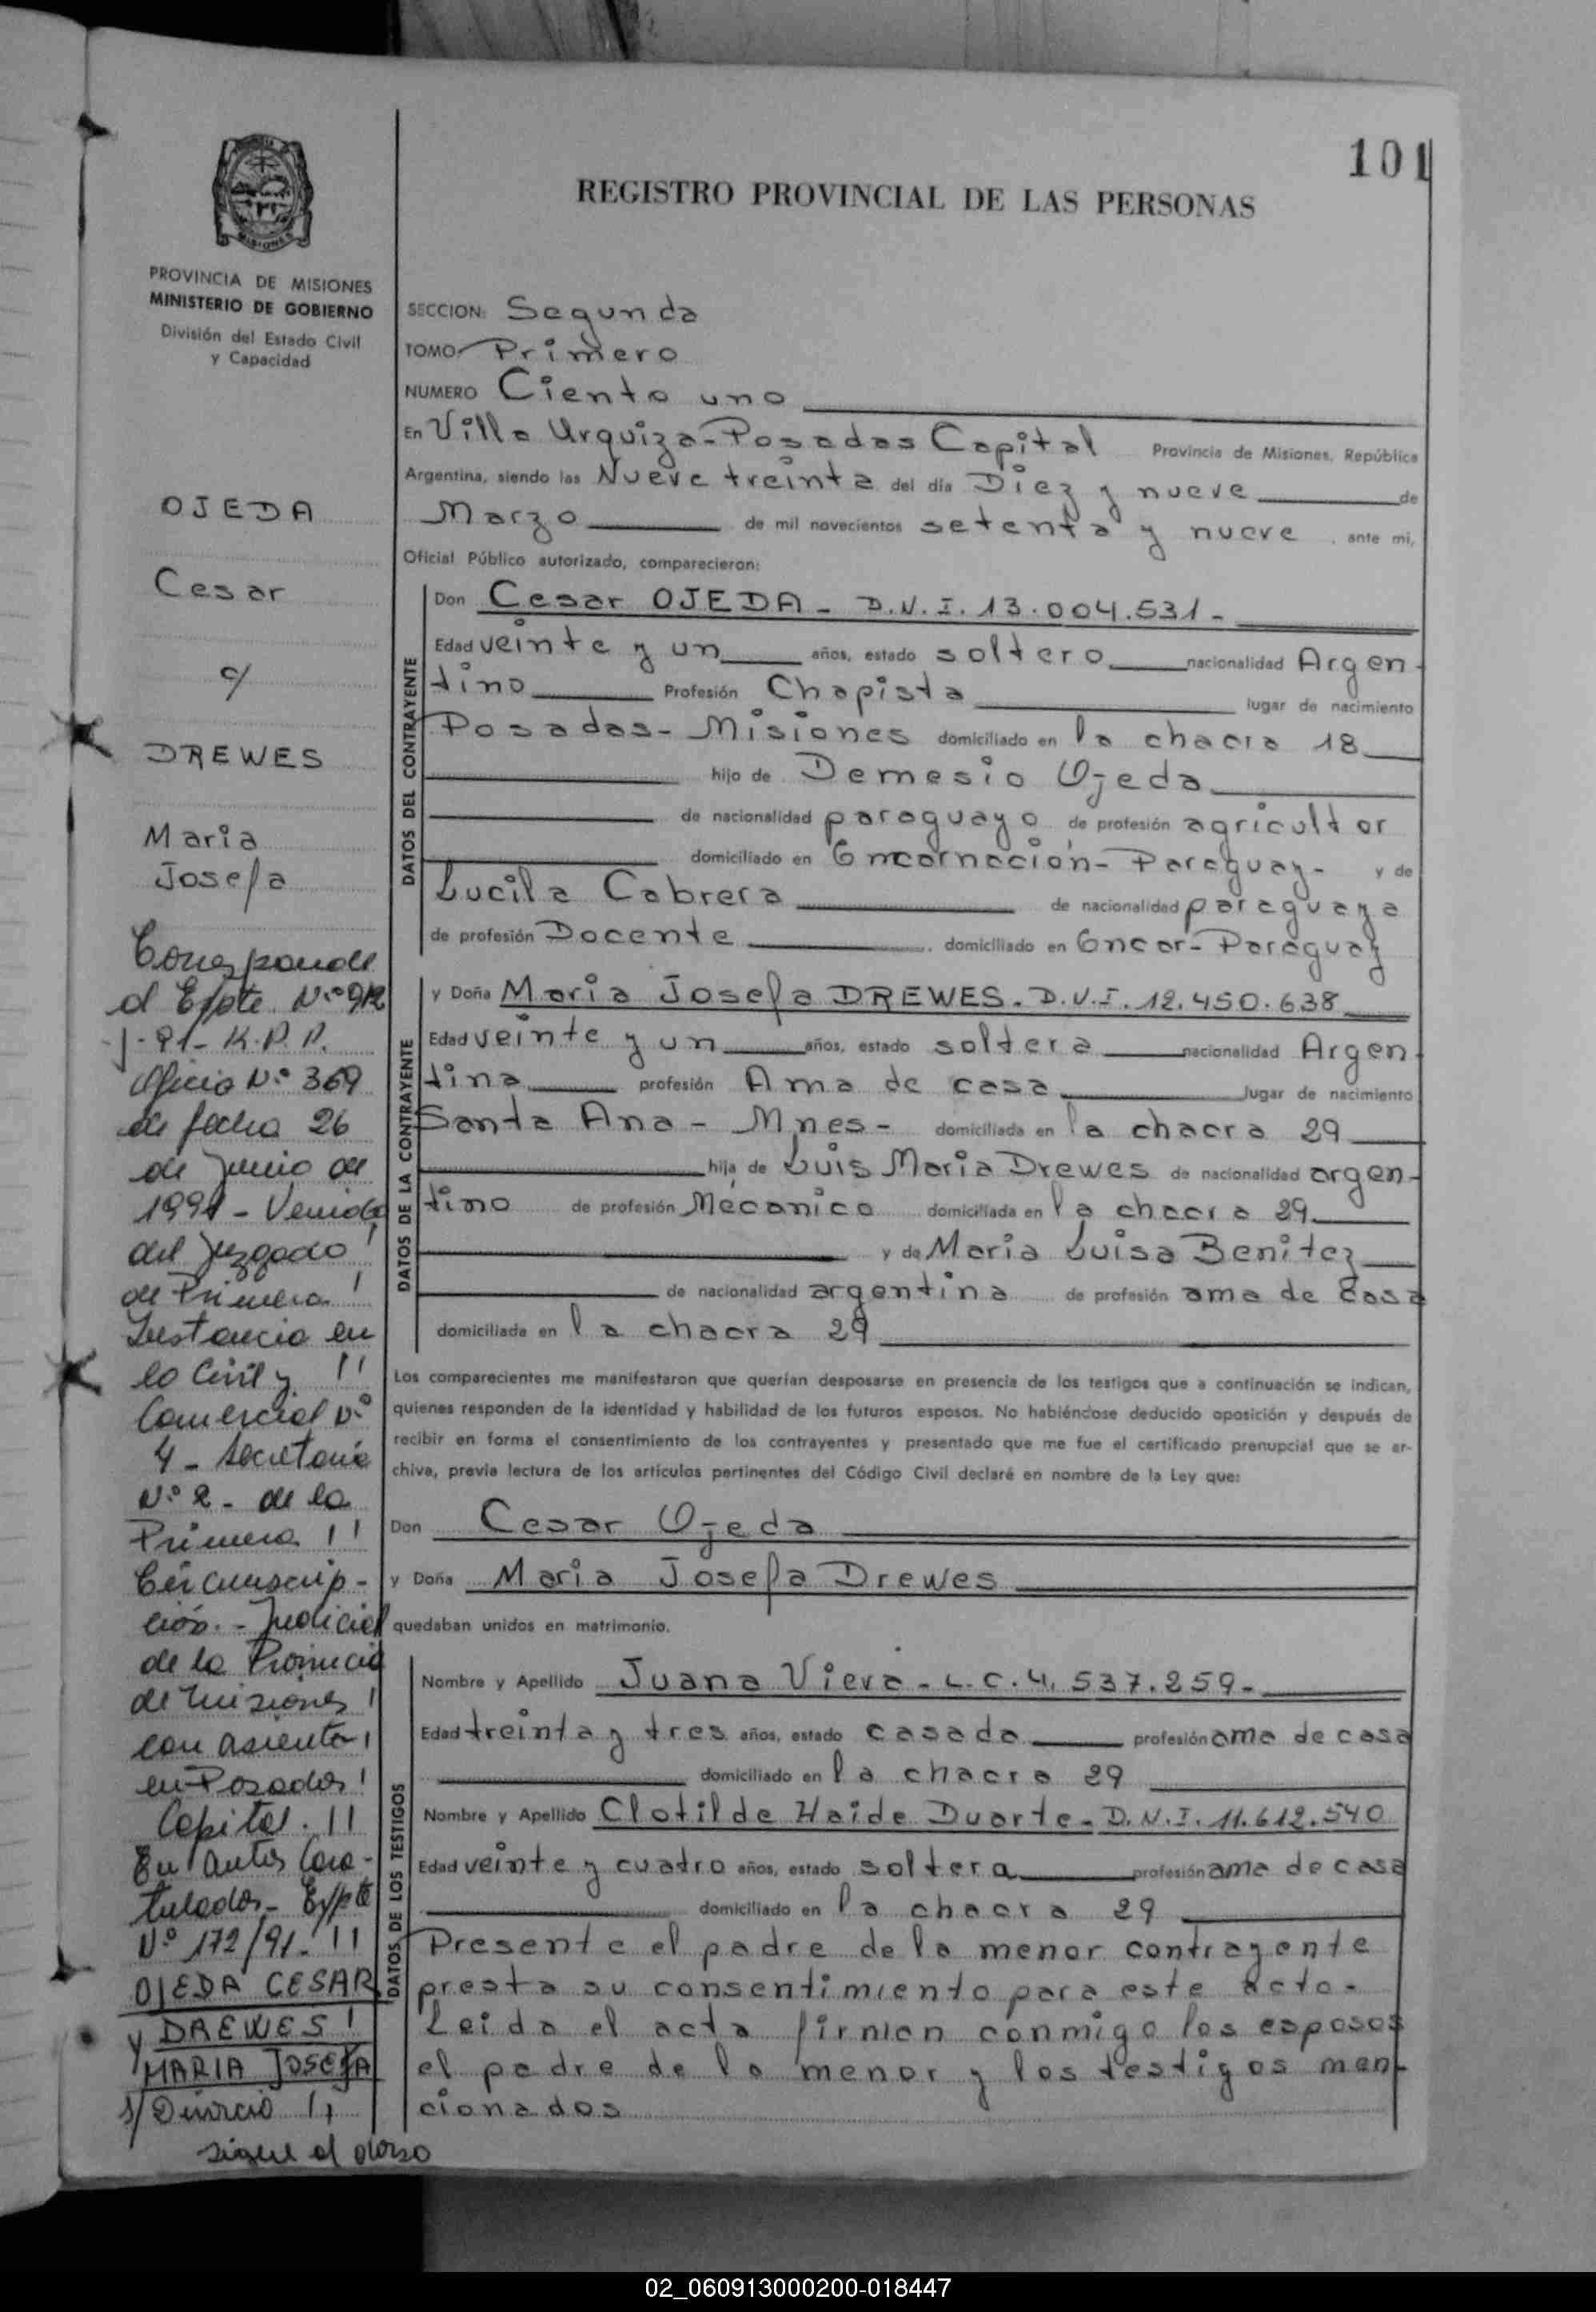 101
REGISTRO PROVINCIAL DE LAS PERSONAS
MISIONES
PROVINCIA DE MISIONES
MINISTERIO DE GOBIERNO
División del Estado Civil
y Capacidad
OJEDA
Cesar
c/
DREWES
Maria
Josefa
Corresponde
al Expte. Nº 912
J-91- K.P.P.
Oficio Nº 369
de fecha 26
de Junio de
1991 - Venido
del Juzgado
de Primera
Instancia en
lo Civil y
Comercial Nº
4 - Secretaria
Nº 2 - de la
Primera
Circunscrip-
ción - Judicial
de la Provincia
de Misiones
con asiento
en Posadas
Capital.
En autos Cara-
tulados - Expte
Nº 172/91.
OJEDA CESAR
y DREWES
MARIA JOSEFA
s/ Divorcio
sigue al dorso
SECCION: Segunda
TOMO Primero
NUMERO Ciento uno
En Villa Urquiza-Posadas Capital Provincia de Misiones, República
Argentina, siendo las Nueve treinta del día Diez y nueve de
Marzo de mil novecientos setenta y nueve, ante mi,
Oficial Público autorizado, comparecieron:
DATOS DEL CONTRAYENTE
Don Cesar OJEDA - D.N.I. 13.004.531-
Edad veinte y un años, estado soltero nacionalidad Argen-
tino Profesión Chapista lugar de nacimiento
Posadas- Misiones domiciliado en la chacra 18
hijo de Demesio Ojeda
de nacionalidad paraguayo de profesión agricultor
domiciliado en Encarnación- Paraguay- y de
Lucila Cabrera de nacionalidad paraguaya
de profesión Docente, domiciliado en Encar- Paraguay
DATOS DE LA CONTRAYENTE
y Doña Maria Josefa DREWES. D.N.I. 12.450.638
Edad veinte y un años, estado soltera nacionalidad Argen-
tina profesión Ama de casa lugar de nacimiento
Santa Ana - Mnes- domiciliada en la chacra 29
hija de Luis Maria Drewes de nacionalidad argen-
tino de profesión Mécanico domiciliada en la chacra 29
y de Maria Luisa Benitez
de nacionalidad argentina de profesión ama de casa
domiciliada en la chacra 29
Los comparecientes me manifestaron que querían desposarse en presencia de los testigos que a continuación se indican,
quienes responden de la identidad y habilidad de los futuros esposos. No habiéndose deducido oposición y después de
recibir en forma el consentimiento de los contrayentes y presentado que me fue el certificado prenupcial que se ar-
chiva, previa lectura de los artículos pertinentes del Código Civil declaré en nombre de la Ley que:
Don Cesar Ojeda
y Doña Maria Josefa Drewes
quedaban unidos en matrimonio.
DATOS DE LOS TESTIGOS
Nombre y Apellido Juana Viera - L.C. 4.537.259-
Edad treinta y tres años, estado casada profesión ama de casa
domiciliado en la chacra 29
Nombre y Apellido Clotilde Haide Duarte- D.N.I. 11.612.540
Edad veinte y cuatro años, estado soltera profesión ama de casa
domiciliado en la chacra 29
Presente el padre de la menor contrayente
presta su consentimiento para este acto-
Leida el acta firman conmigo los esposos
el padre de la menor y los testigos men-
cionados
02_060913000200-018447